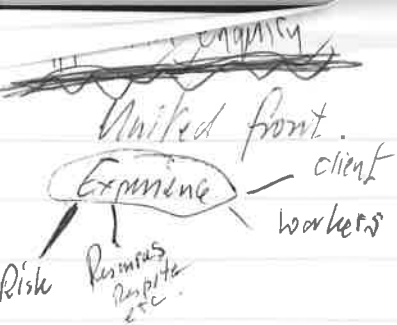 enquiry
United front.
Experience
client
workers
Risk
Respite
etc.